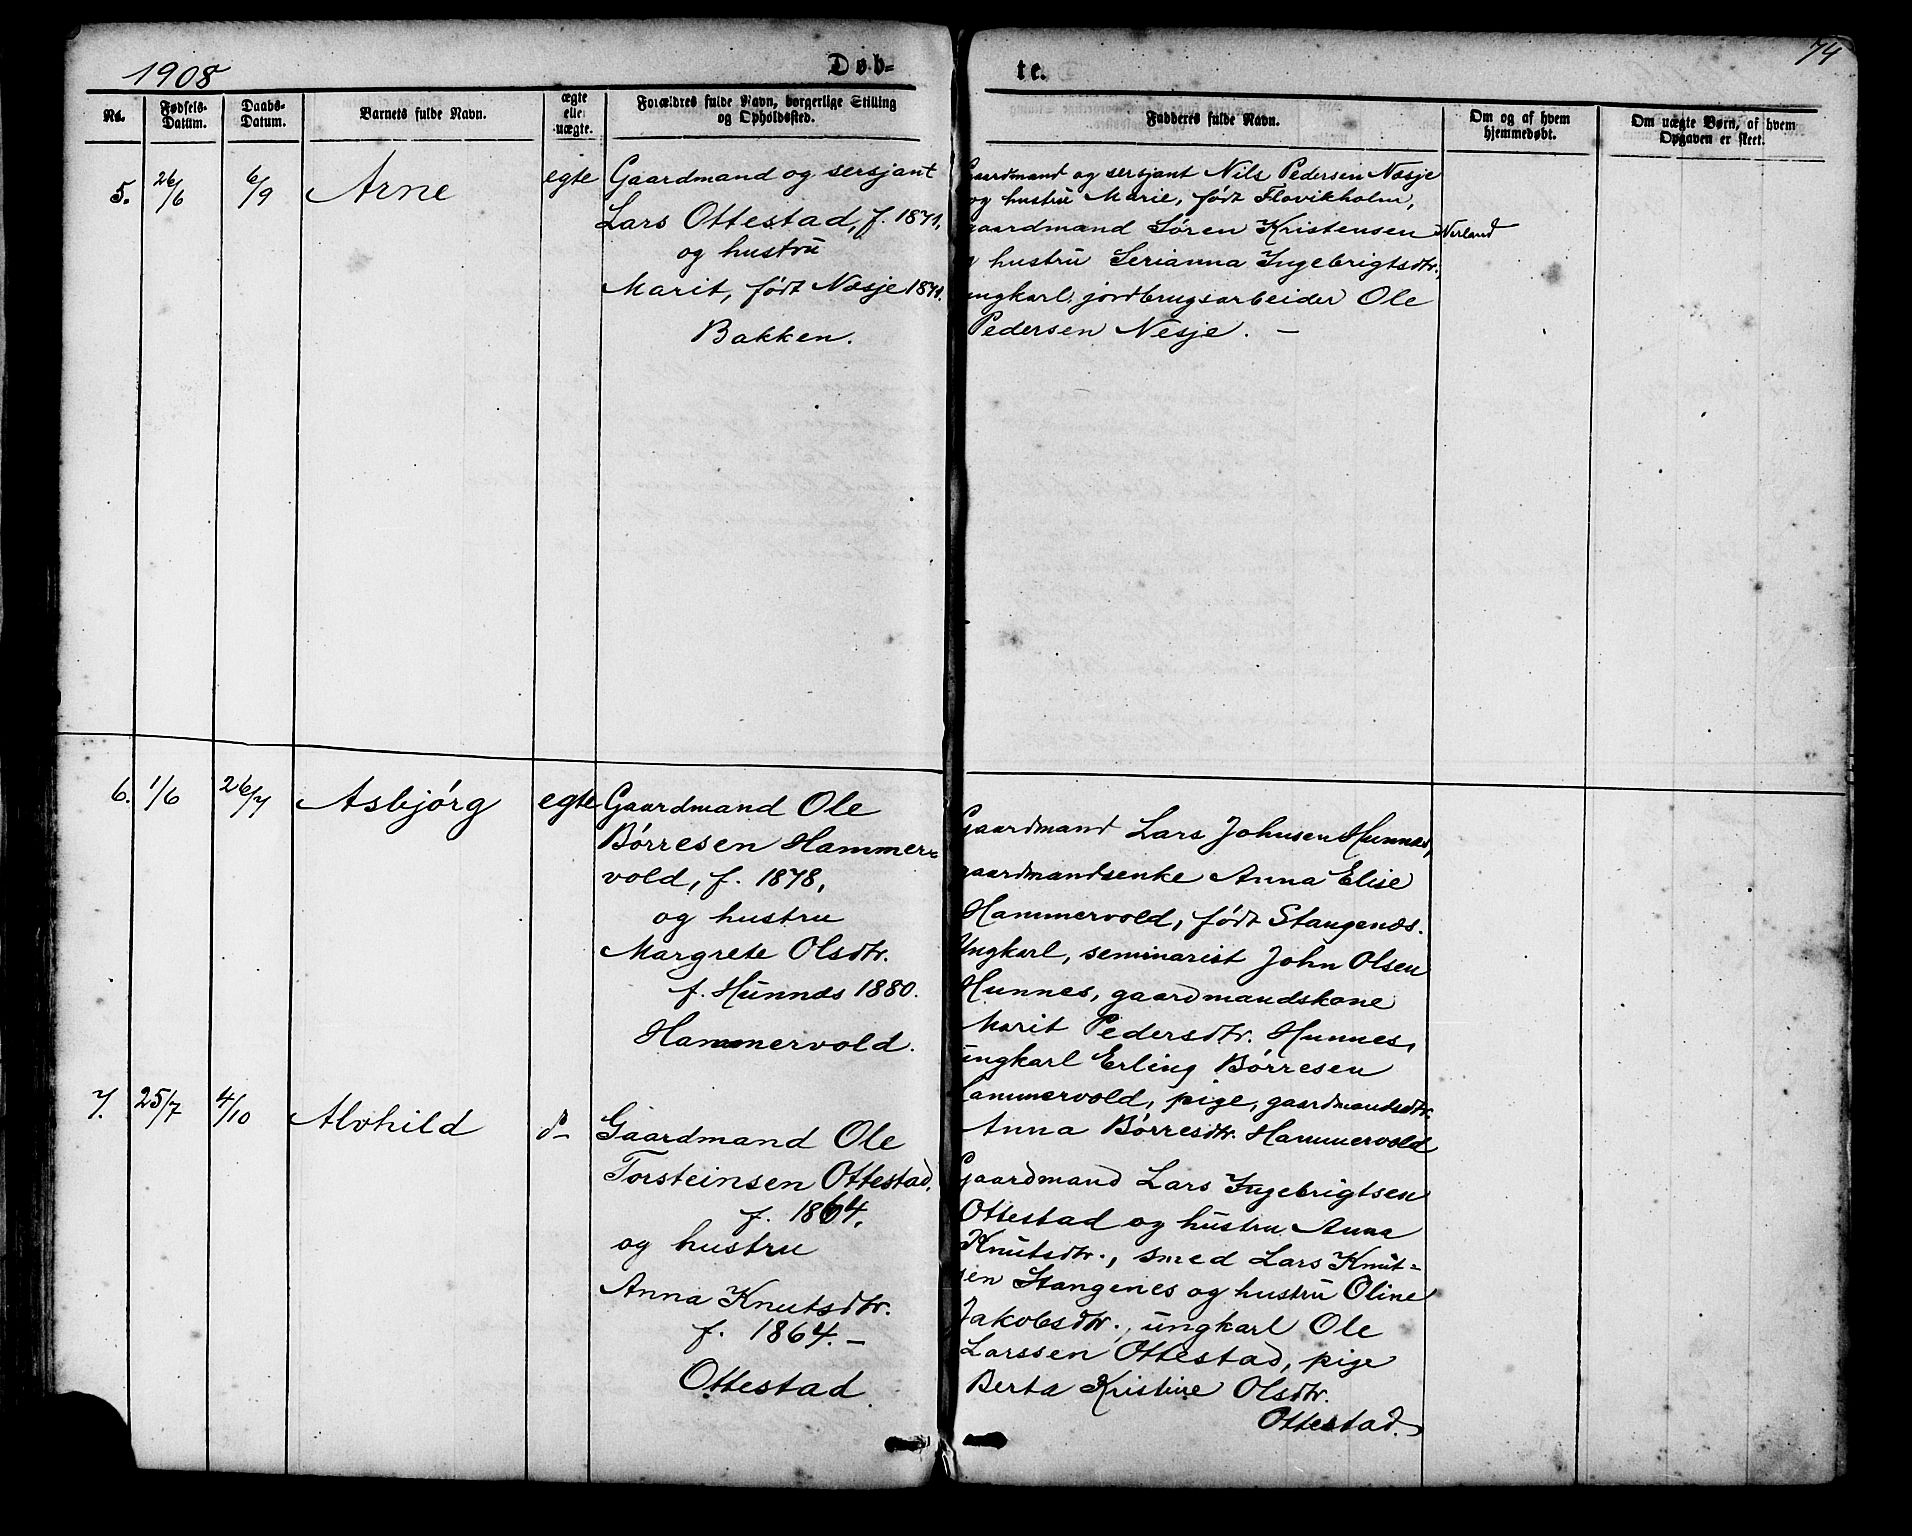 1908
Døb-
te.
74
No.
Fødsels-
Datum.
Daabs-
Datum.
Barnets fulde Navn.
ægte
elle
uægte.
Forældres fulde Navn, borgerlige Stilling
og Opholdssted.
Fadderes fulde Navn.
Om og af hvem
hjemmedøbt.
Om uægte Børn, af hvem
Opgaven er skeet.
5.
26/6
6/9
Arne
egte
Gaardmand og sersjant
Lars Ottestad, f. 1871,
og hustru
Marit, født Næsje 1871.
Bakken.
Gaardmand og sersjant Nils Pedersen Næsje
og hustru Marie, født Flovikholm,
gaardmand Søren Kristensen Nerland
hustru Serianna Ingebrigtsdtr.,
ungkarl, jordbrugsarbeider Ole
Pedersen Nesje. —
6.
1/6
26/7
Asbjørg
egte
Gaardmand Ole
Børresen Hammer=
vold, f. 1878,
og hustru
Margrete Olsdtr.
f. Hunnæs 1880.
Hammervold.
Gaardmand Lars Johnsen Hunnæs,
gaardmandsenke Anna Elise
Hammervold, født Stangenæs.
Ungkarl, seminarist John Olsen
Hunnes, gaardmandskone
Marit Pedersdtr. Hunnes,
ungkarl Erling Børresen
Hammervold, pige, gaardmandsdtr.
Anna Børresdtr. Hammervold
7.
25/7
4/10
Alvhild
do
Gaardmand Ole
Torsteinsen Ottestad,
f. 1864,
og hustru
Anna Knutsdtr.
f. 1864. —
Ottestad
Gaardmand Lars Ingebrigtsen
Ottestad og hustru Anna
Knutsdtr., smed Lars Knut-
sen Stangenes og hustru Oline
Jakobsdtr., ungkarl Ole
Larssen Ottestad, pige
Berta Kristine Olsdtr.
Ottestad.